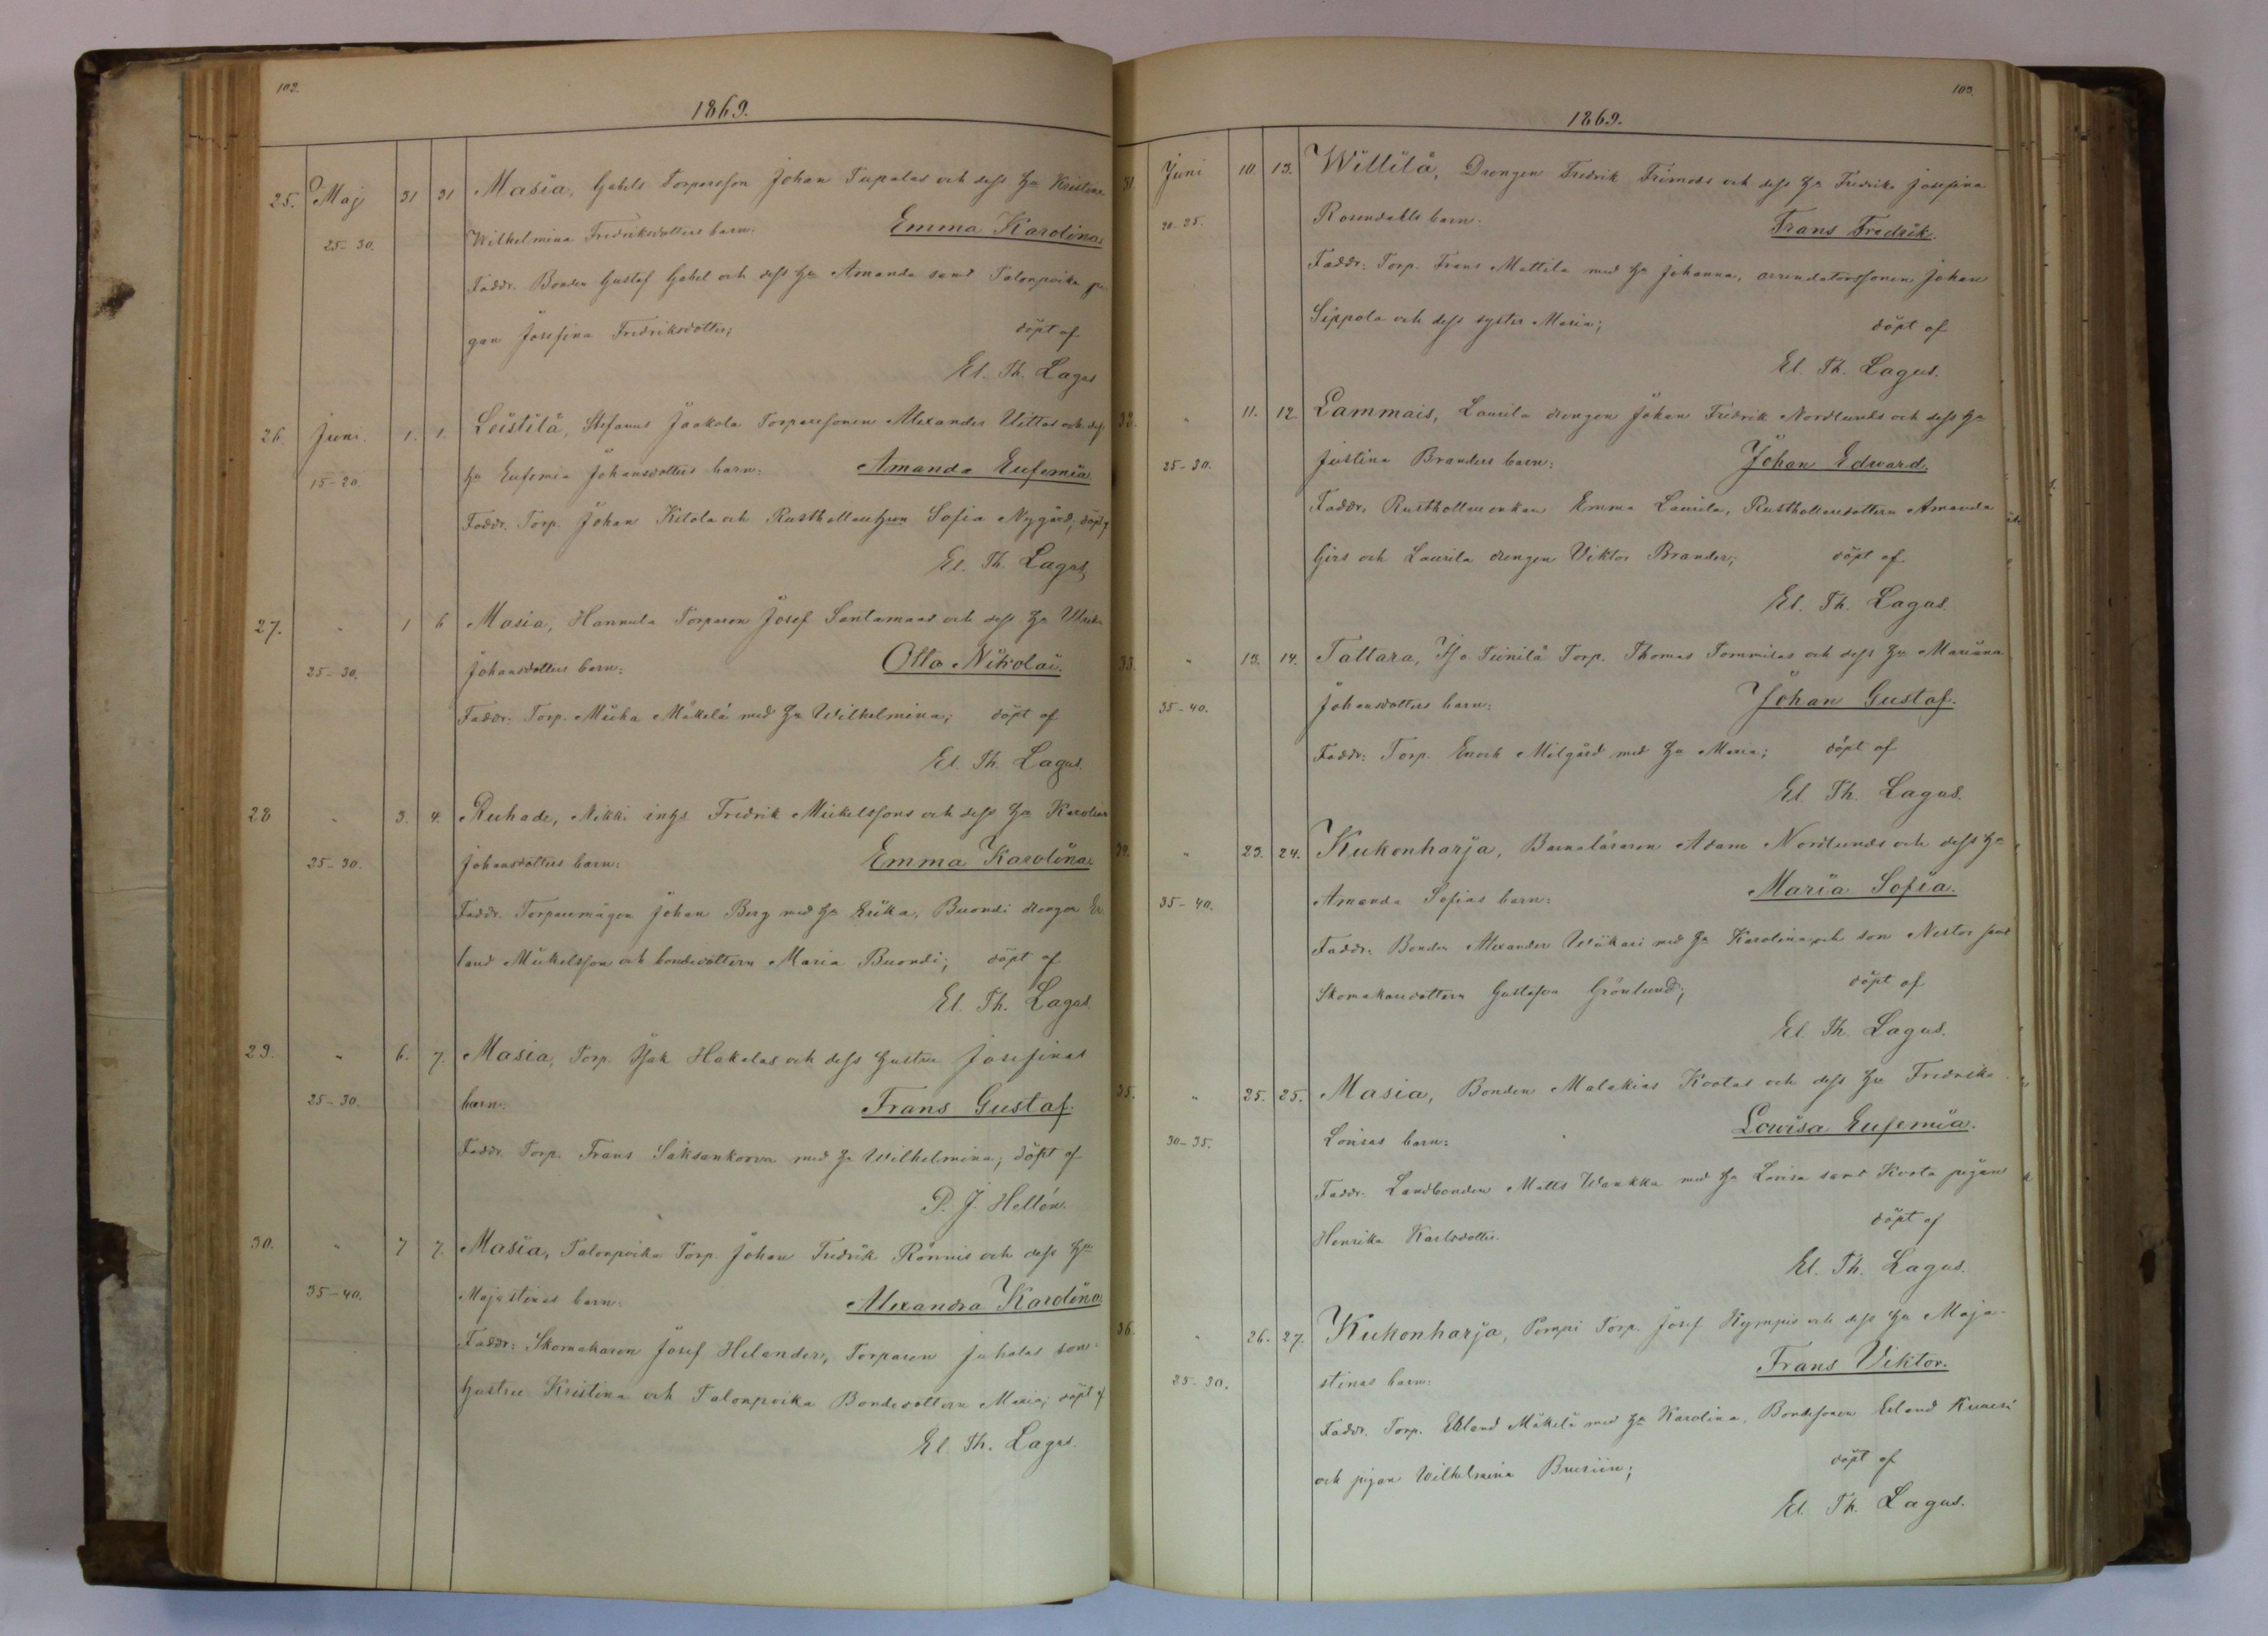 102.
1869.
25. Maj 31 31 Masia, Gabels Torparesson Johan Tupalas och dess Hu Kristina
25-30. Wilhelmina Fredriksdotters barn: Emma Karolina.
Faddr. Bonden Gustaf Gabel och dess Hu Amanda samt Talonpoika pi
gan Josefina Fredriksdotter; döpt af
El. Th. Lagus
26. Juni. 1. 1. Leistilä, Stefanus Jaakola Torparesonen Alexander Uittos och dess
15-20. Hu Eufemia Johansdotters barn: Amanda Eufemia.
Faddr. Torp. Johan Ketola och Rusthollarehun Sofia Nygård; döpt af
El. Th. Lagus
27. " 1 6 Masia, Hannula Torparen Josef Santamaas och dess Hu Ulrika
25-30. Johansdotters barn: Otto Nikolai.
Faddr: Torp. Miika Mäkelä med Hu Wilhelmina; döpt af
El. Th. Lagus.
28 " 3. 4. Ruhade, Nikki inhs Fredrik Mickelssons och dess Hu Karolina
25-30. Johansdotters barn: Emma Karolina.
Faddr. Torparemågen Johan Berg med Hu Erika, Buondi drengen Er
land Mickelsson och bondedottern Maria Buondi; döpt af
El. Th. Lagus
29. " 6. 7. Masia, Torp. Isak Hakalas och dess hustru Josefinas
25-30. barn: Frans Gustaf.
Faddr. Torp. Frans Saksankorva med Hu Wilhelmina; döpt af
P. J. Hellén.
30. " 7 7. Masia, Talonpoika Torp. Johan Fredrik Rönnis och dess Hu
35-40. Majastinas barn: Alexandra Karolina.
Faddr: Skomakaren Josef Helander, Torparen Juhalas son-
hustru Kristina och Talonpoika Bondedottern Maria; döpt af
El. Th. Lagus.
103.
1869.
31. Juni 10. 13. Willilä, Drengen Fredrik Frimods och dess Hu Fredrika Josefina
20-25. Rosendahls barn: Frans Fredrik.
Faddr: Torp. Frans Mattila med Hu Johanna, arrendatorssonen Johan
Sippola och dess syster Maria; döpt af
El. Th. Lagus.
32. " 11. 12. Lammais, Laurila drengen Johan Fredrik Nordlunds och dess Hu
25-30. Justina Branders barn: Johan Edward.
Faddr. Rusthollareenkan Emma Laurila, Rusthollaredottern Amanda
Girs och Laurila drengen Viktor Brander; döpt af
El. Th. Lagus.
33. " 13. 14. Tattara, Iso Tiinilä Torp. Thomas Tommilas och dess Hu Mariana
35-40. Johansdotters barn: Johan Gustaf.
Faddr: Torp. Enoch Milgård med Hu Maria; döpt af
El. Th. Lagus.
34. " 23. 24. Kukonharja, Barnaläraren Adam Nordlunds och dess Hu
35-40. Amanda Sofias barn: Maria Sofia.
Faddr: Bonden Alexander Wiikari med Hu Karolina och son Nestor samt
Skomakaredottern Gustafva Grönlund; döpt af
El. Th. Lagus.
35. " 25. 25. Masia, Bonden Malakias Kootas och dess Hu Fredrika
30-35. Lovisas barn: Lowisa Eufemia.
Faddr. Landbonden Matts Wankka med Hu Lovisa samt Koota pigan
Henrika Karlsdotter. döpt af
El. Th. Lagus.
36. " 26. 27. Kukonharja, Pompi Torp. Josef Kympis och dess Hu Maja-
25-30. stinas barn: Frans Viktor.
Faddr. Torp. Erland Mäkelä med Hu Karolina, Bondesonen Erland Kuuri
och pigan Wilhelmina Brusiin; döpt af
El. Th. Lagus.